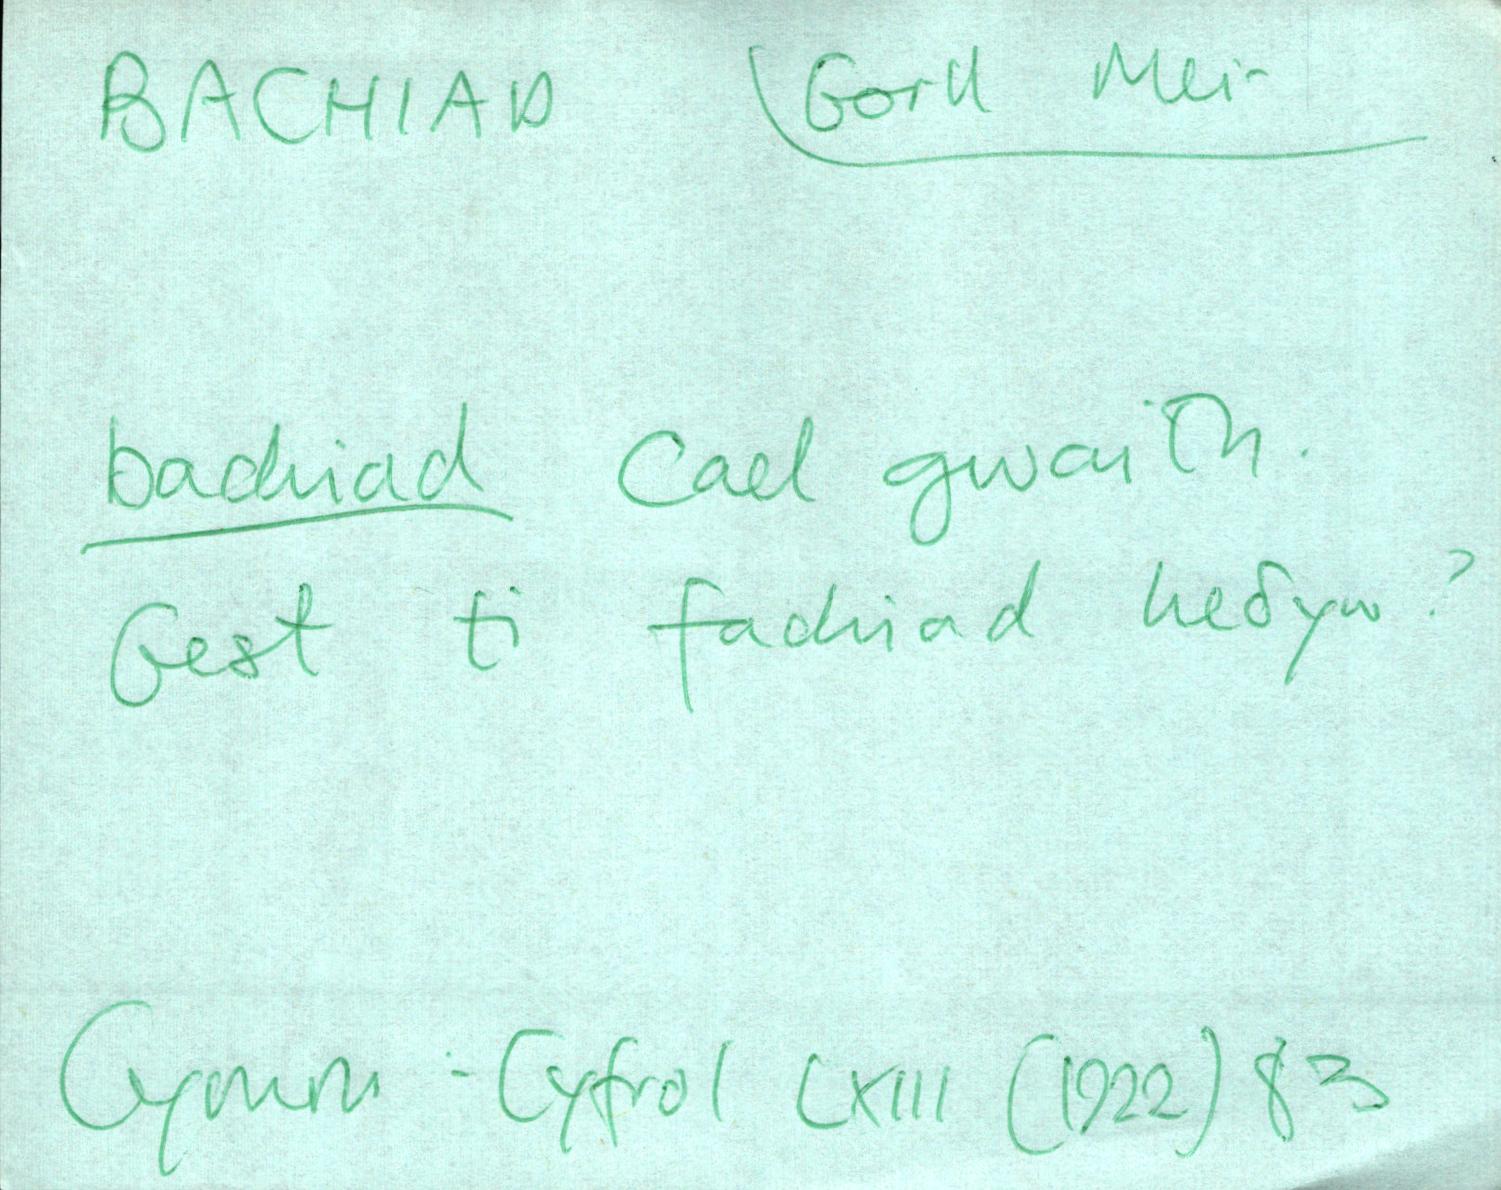 BACHIAD Gorll Meir
bachiad Cael gwaith.
Gest ti fachiad heδyw?
Cymru - Cyfrol LXIII (1922) 83